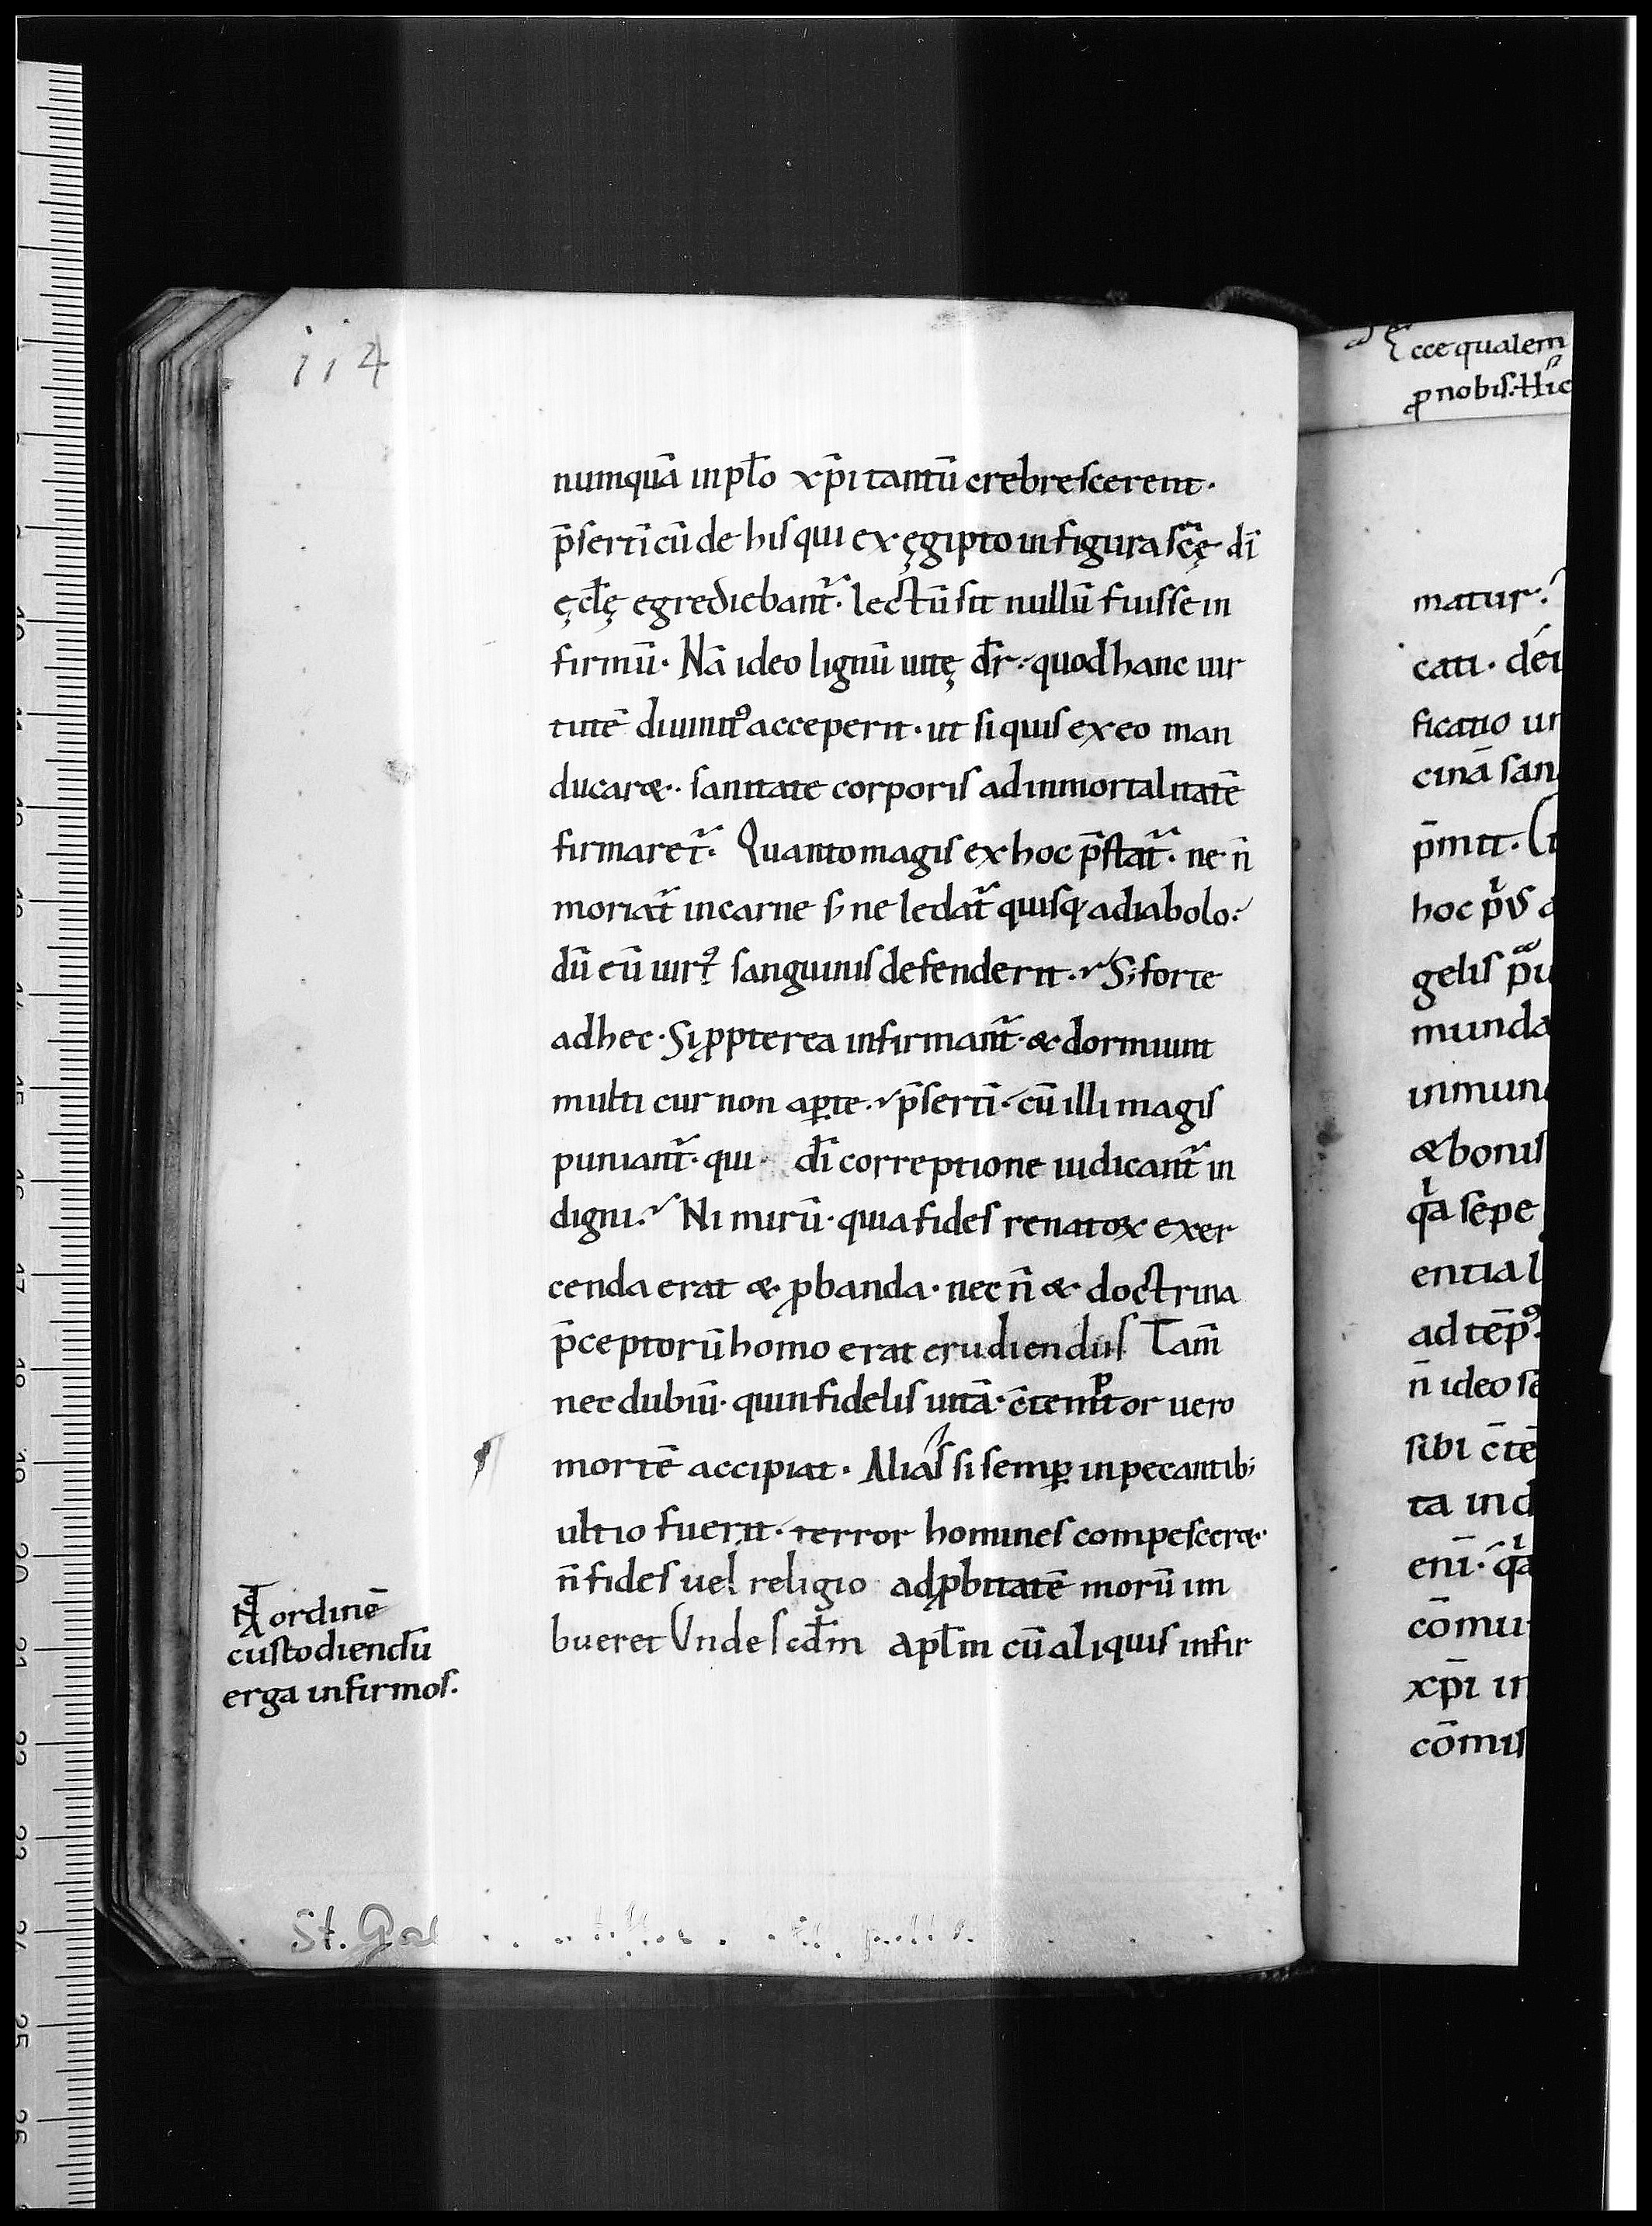 114
numquā in pło xp̄i tantū crebrescerent·
p̄sertī cū de his qui ex ęgipto in figura scę̄ dī
ęcłę egrediebant̄· lectū sit nullū fuisse in
firmū· Nā ideo lignū uitę dr̄· quod hanc uir
tutē diuinit᷒ acceperit· ut si quis ex eo man
ducar&· sanitate corporis ad inmortalitatē
firmaret̄· Quanto magis ex hoc p̄stat̄· ne n̄
moriat̄ in carne s; ne ledat̄ quisq· a diabolo·
dū eū uirt᷒ sanguinis defenderit· S; forte
ad hec· Si ꝓpterea infirmant̄· & dormiunt
multi cur non aꝑte· p̄sertī· cū illi magis
puniant̄· qui· dī correptione iudicant̄ in
digni· Ni mirū· quia fides renatoꝝ exer
cenda erat & ꝓbanda· nec n̄ & doctrina
p̄ceptorū homo erat erudiendus Tam̄
nec dubiū· quin fidelis uitā· c̄tēptor uero
mortē accipiat· Alias si semꝑ in peccantib;
ultio fuerit· terror homines compescer&·
n̄ fides uel religio ad ꝓbitatē morū im
bueret Unde scdm̄ apłm cū aliquis infir
ordinē
custodiendū
erga infirmos·
St. Gal
Ecce qualem
ꝓ nobis· Hic
matur·
cati· dei
ficatio
cinā san
p̄mit·
hoc
gelis
munda
inmun
& bonis
q̍a sepe
ential
ad tēp᷒
n̄ ideo se
sibi c̄tē
ta ind
enī· q̍a
cōmu
xp̄i in
cōmis